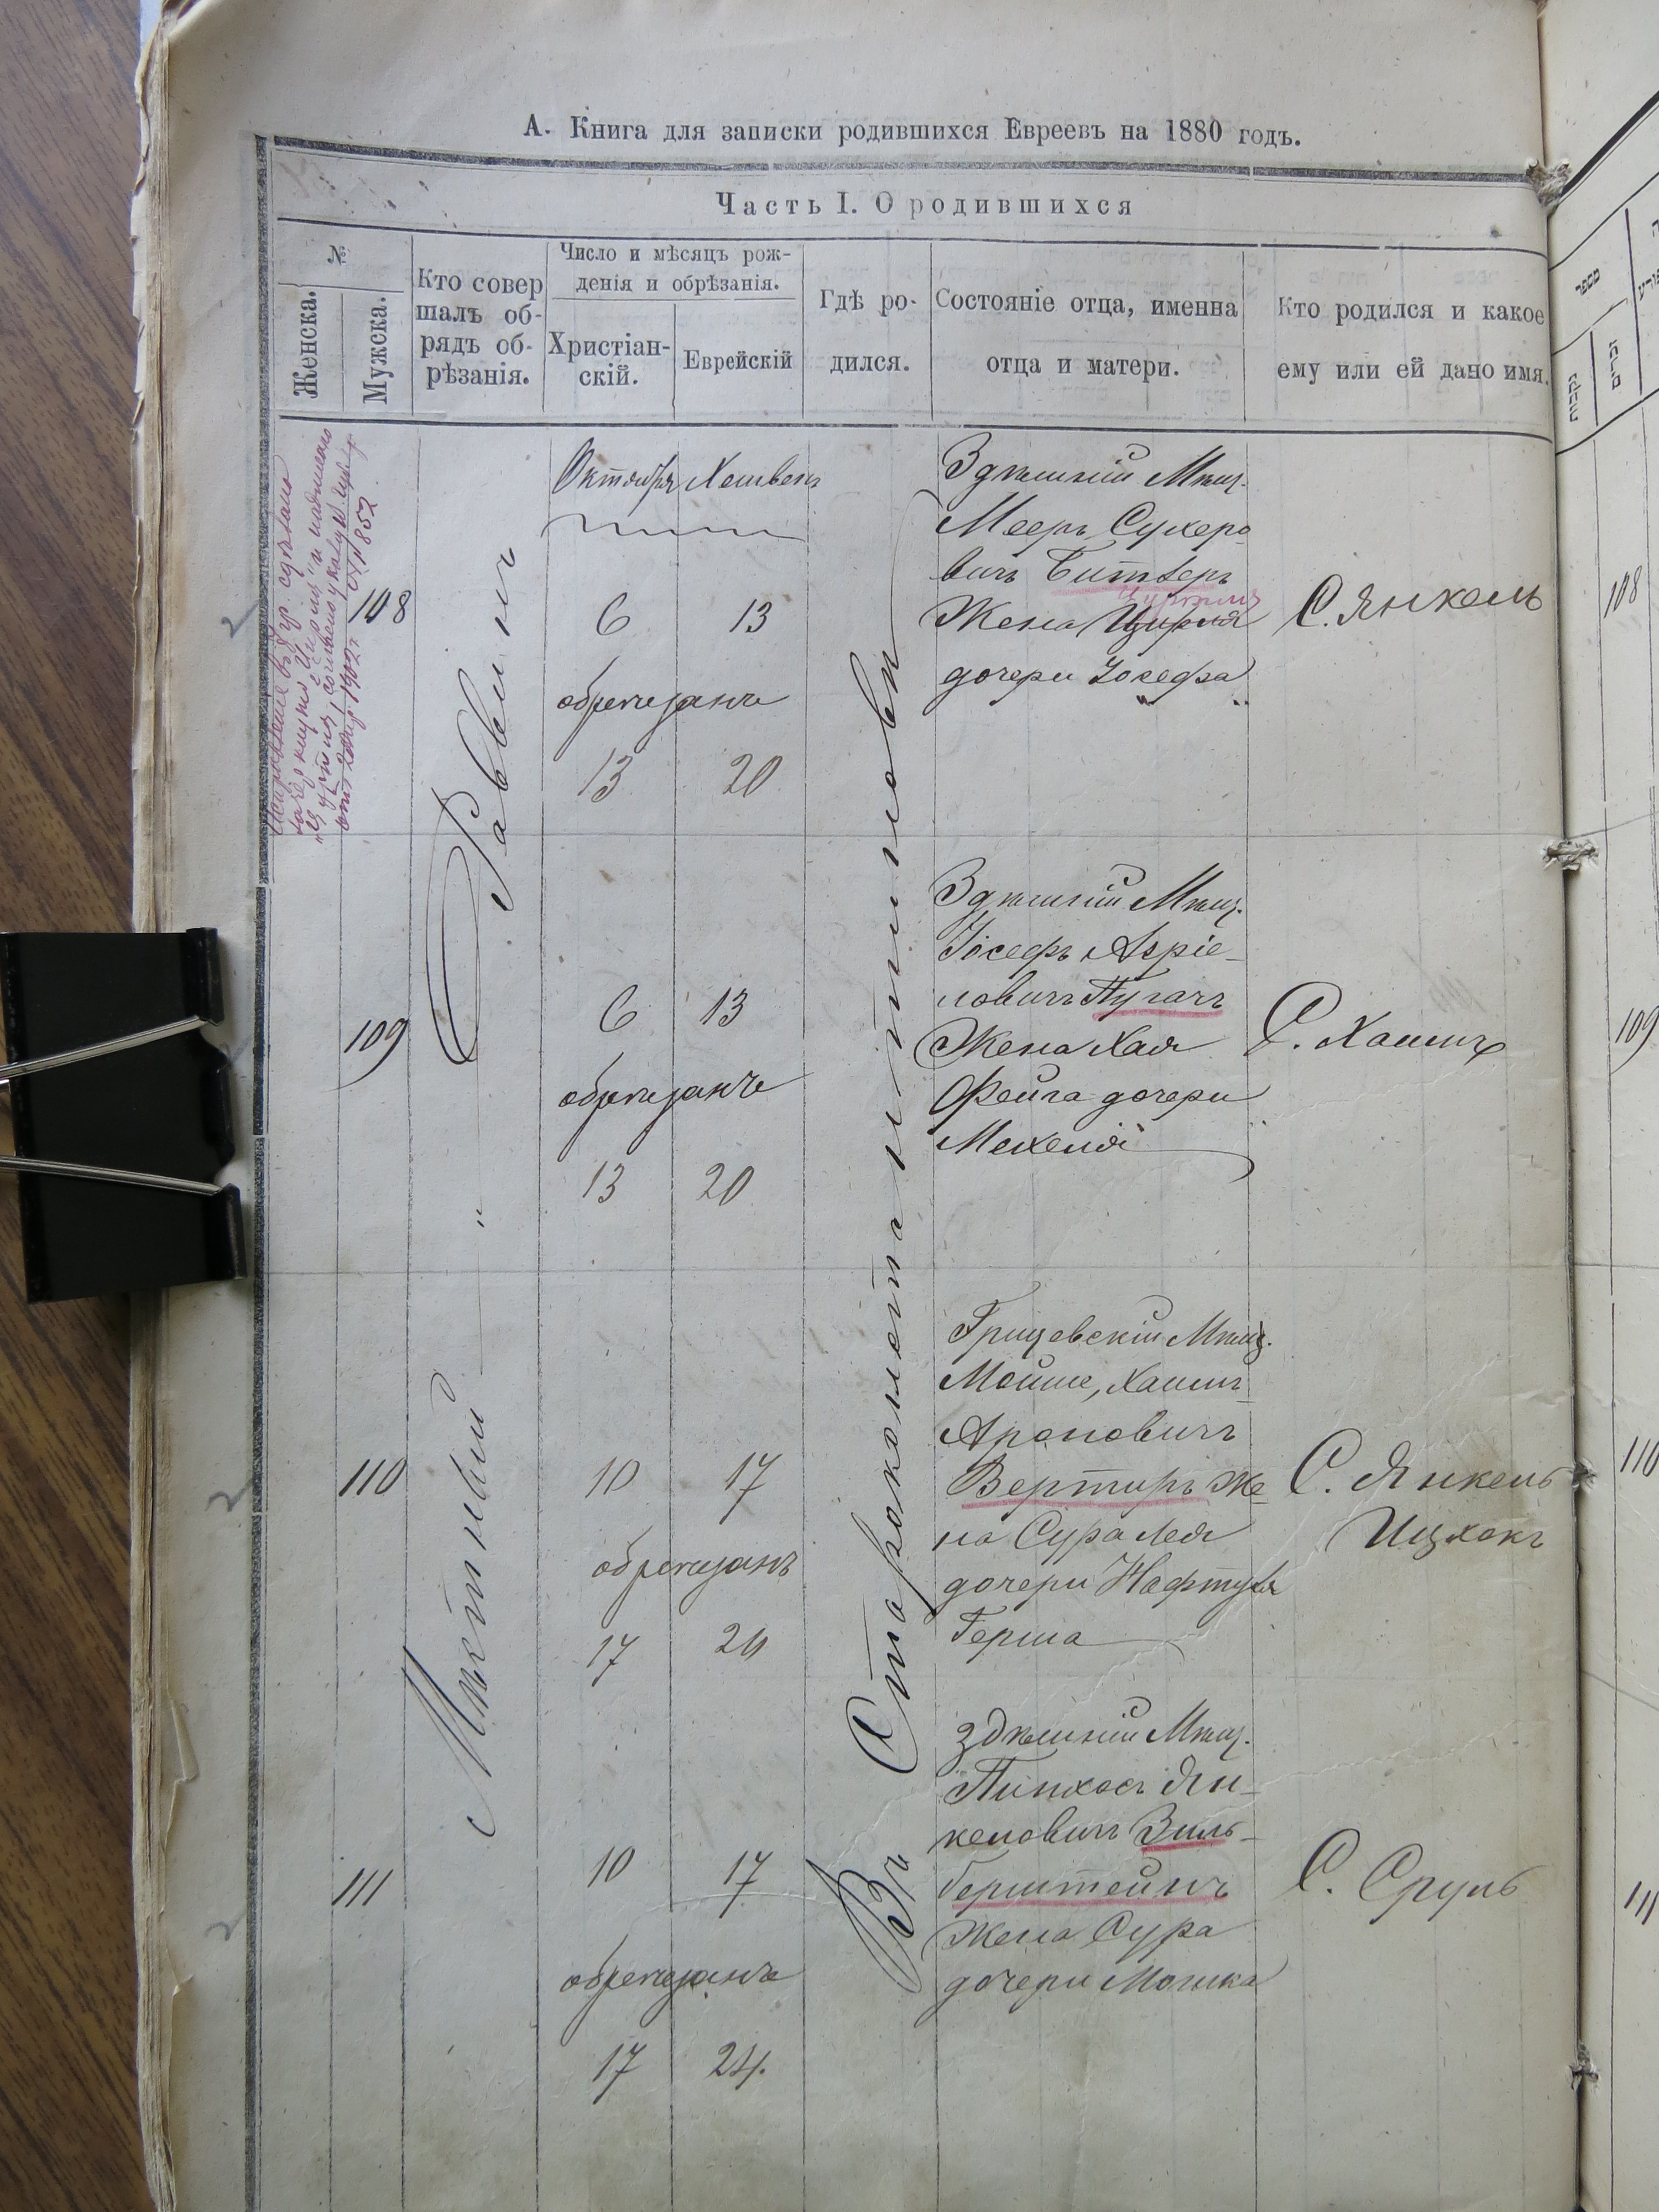 А. Книга для записки родившихся Евреевъ на 1880 годъ.
Часть I. О родившихся
№
Женска.
Мужска.
Кто совер
шалъ об-
рядъ об-
рѣзанія.
Число и мѣсяцъ рож-
денія и обрѣзанія.
Христіан-
скій.
Еврейскій
Гдѣ ро-
дился.
Состояніе отца, именна
отца и матери.
Кто родился и какое
ему или ей дано имя.
Раввинъ
"
Мѣстный
Въ Староконстантиновѣ
108
Октября Хешвенъ
6 13
обрѣчезанъ
13 20
Здѣшній Мѣщ.
Мееръ Сухеро
вичъ Битверъ
Жена Цирля
дочери Іосефа
С. Янкель
109
6 13
обрѣчезанъ
13 20
Здѣшній Мѣщ.
Іосефъ Азріе-
ловичъ Пугачъ
Жена Хая
Фейга дочери
Мехеля
С. Хаимъ
110
10 17
обрѣчезанъ
17 24
Грицевскій Мѣщ.
Мойше, Хаимъ
Ароновичъ
Вертиръ Же-
на Сура Лея
дочери Нафтула
Герша
С. Янкель
Ицхокъ
111
10 17
обрѣчезанъ
17 24.
Здѣшній Мѣщ.
Пинхосъ Ян-
келовичъ Зиль-
берштейнъ
Жена Сура
дочери Мошка
С. Сруль
108
109
110
111
מספר
נקבות
זכרים